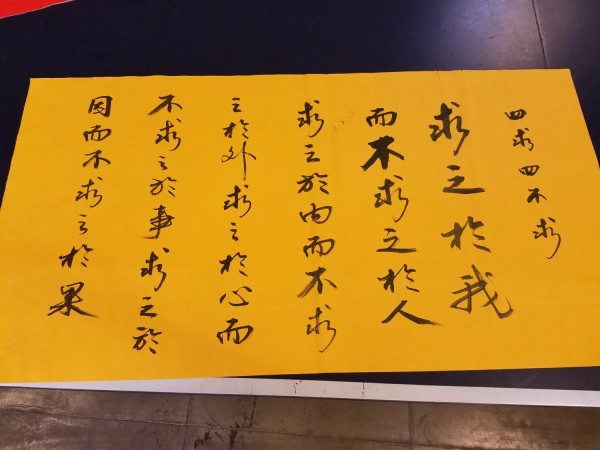 四求四不求
求之於我
而不求之於人
求之於内而不求
之於外求之於心而
不求之於事求之於
因而不求之於果